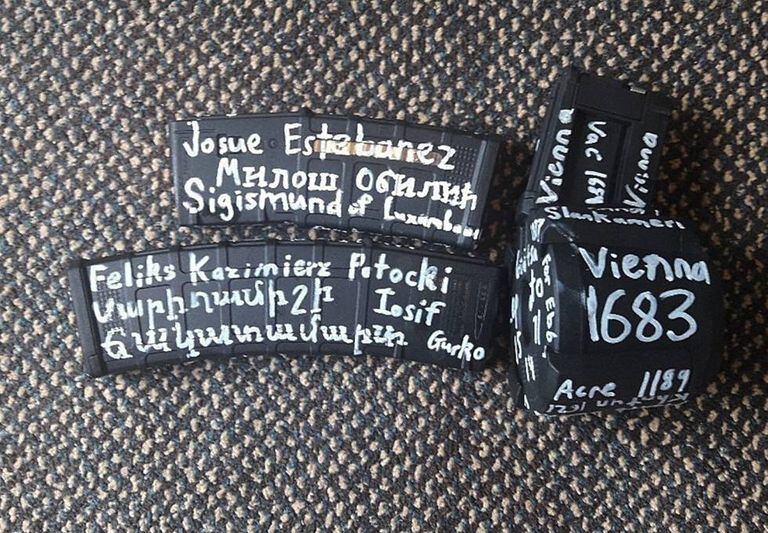 Josue Estebanez
Милош Обилић
Sigismund of
Feliks Kazimierz Potocki
Սարիղամիշի Iosif
ճակատամարտ Gurko
Vienna
Vac
Vienna
Slankamen
For Ebba
Vienna
1683
Acre 1189